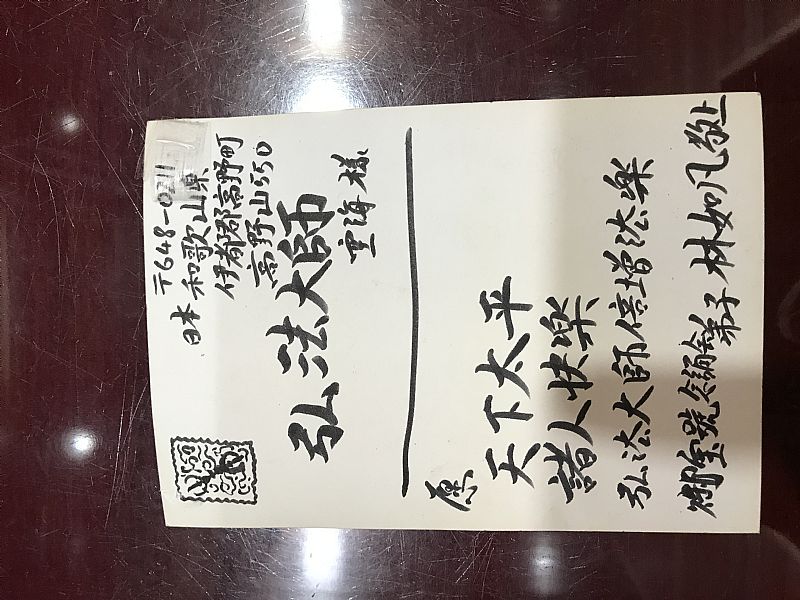 〒648-0211
日本 和歌山県
伊都郡高野町
高野山550
弘法大師
空海 様
愿
天下太平
諸人快樂
弘法大師倍增法樂
弟子 林如凡 敬上